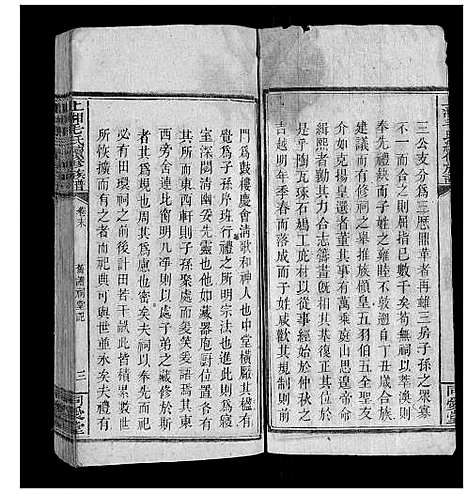 三公支分爲三歷鼎革者再雖三房子孫之衆寡
不一而合之則屈指已數千矣苟無祠以萃渙則
奉先禮缺而子姓之雍睦不敦適自丁丑歲合族
建議而有修祠之舉推族愼皇五羽伯五全聖友
亦如克揚皇選者董其事有乘庭山思皇帝命
緝熙者佐其協力合志籌畫既同相其基復正其位
乎陶瓦琢石工成以次從事經始於仲秋之
吉越明年季春而落成而子姓歡忻瞻其規制前
門爲鼓樓慶會清歌和神人也中堂橫厰其楹以
爲子孫序班行禮之所明宗法也進此則爲寢
室深閟清幽妥先靈也他如藏器庖厨位置各有
所而東西軒則子孫聚處焉爰笑爰語焉其東
西旁舍連比窗明几淨則以子弟之藏修於斯
其爲規制也周其爲慮也密矣夫祠以奉先而已
必有田環祠之前後計田若干畝此皆積累數世
所恢擴而有之者而祀典可與世並永矣夫有禮
上湘毛氏續修族譜
卷末
舊譜祠堂記
三